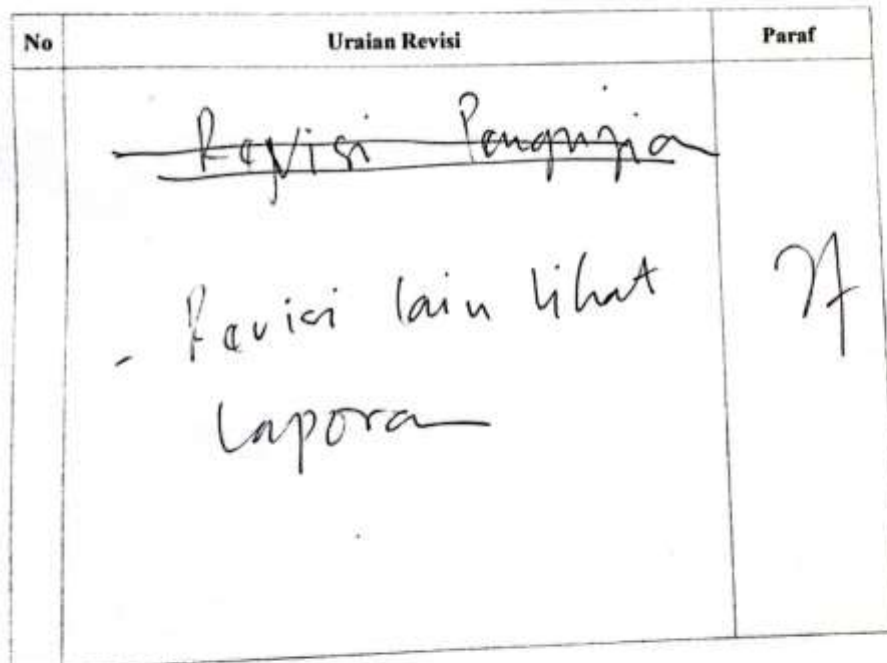 No Uraian Revisi Paraf
Revisi Pengujian
- Revisi lain lihat
laporan